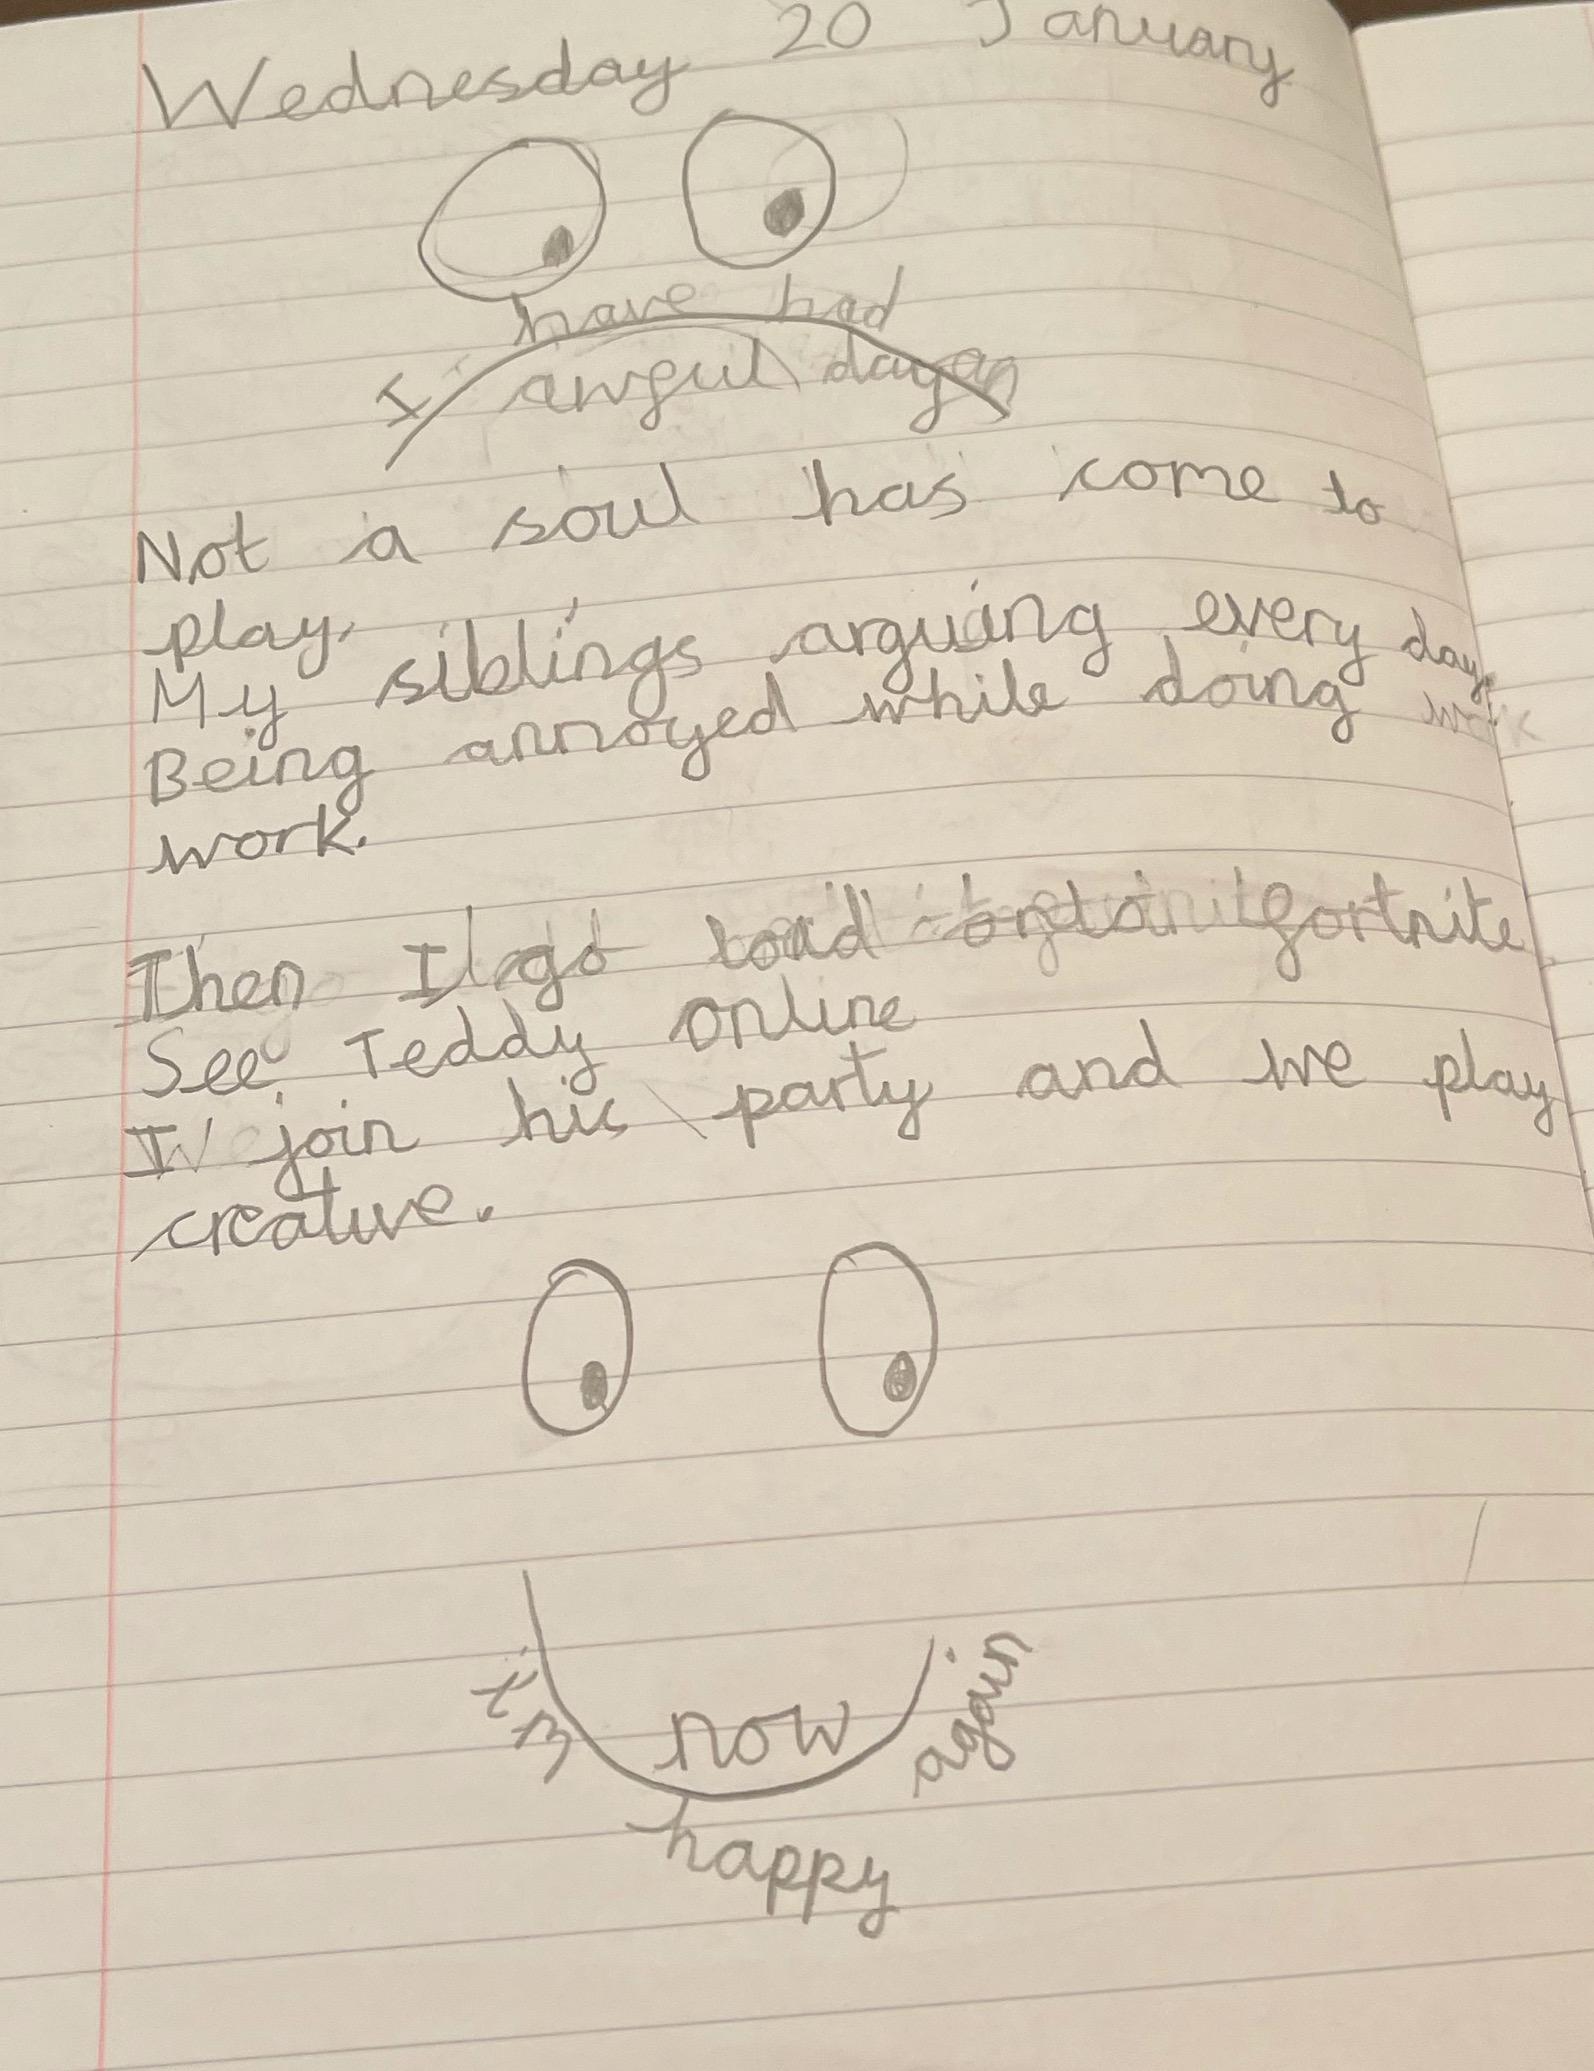 Wednesday 20 January
I have had an
awful day
Not a soul has come to
play,
My siblings arguing every day,
Being annoyed while doing
work.
Then I go load onto fortnite
See Teddy online
I join his party and we play
creative.
now
I'm happy again